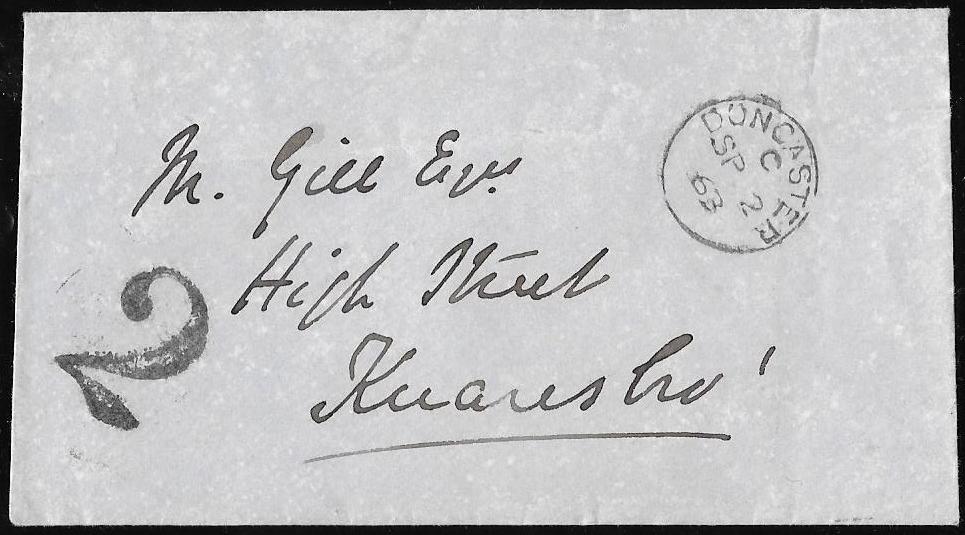 DONCASTER
C
SP 2
63
M. Gill Esqr
High Street
Knaresbro'
2